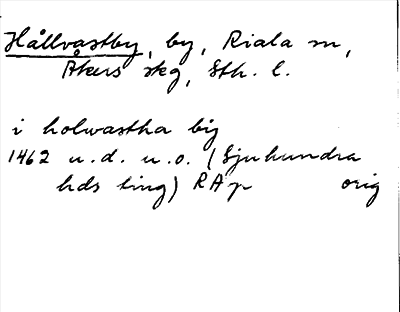 Hållvastby, by, Riala sn,
Åkers skg, Sth. l.
i holwastha by
1462 u.d. u.o. (Sjuhundra
hds ting) RAp orig